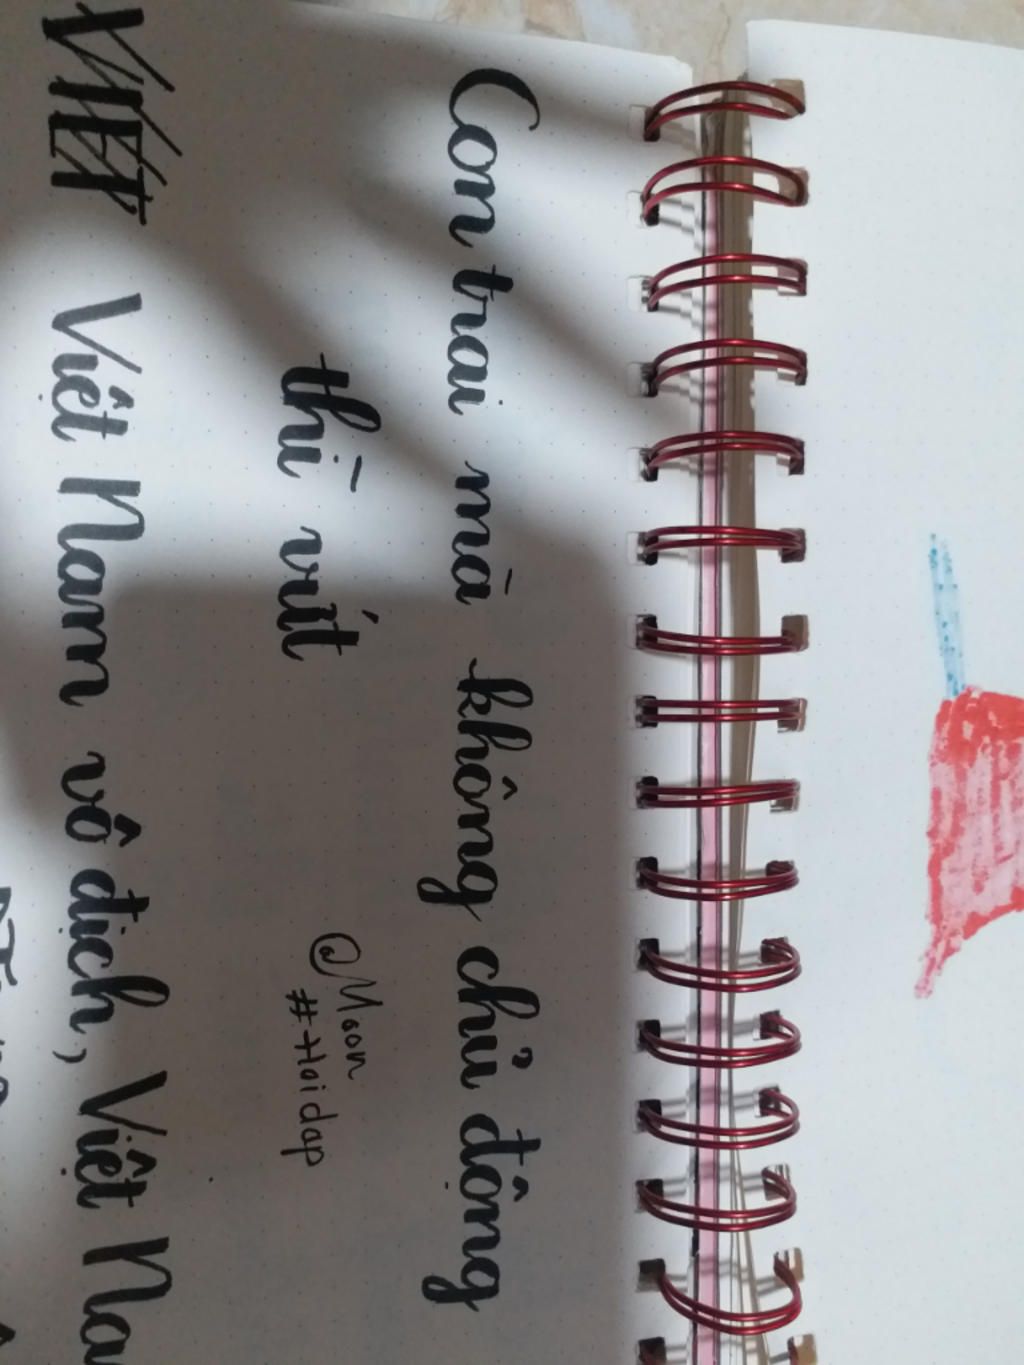 Con trai mà không chủ động
thì vứt
@Moon
#Hoidap
VIẾT Việt Nam vô địch, Việt Na